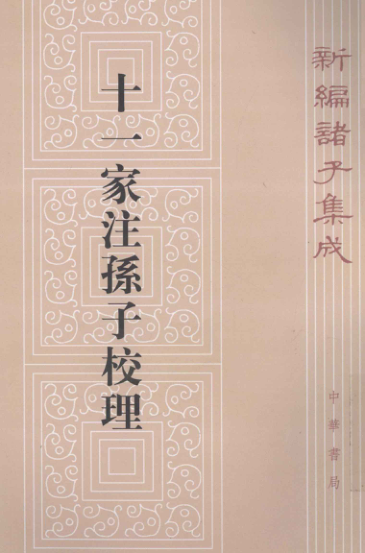 新編諸子集成
十一家注孫子校理
中華書局